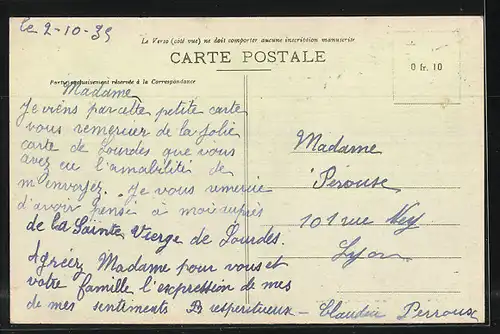 le 2-10-39
Le Verso (côté vue) ne doit comporter aucune inscription manuscrite
CARTE POSTALE
0 fr. 10
Partie exclusivement réservée à la Correspondance
Madame
Je viens par cette petite carte
vous remercier de la jolie
carte de Lourdes que vous
avez eu l'amabilité de
m'envoyez. Je vous remercie
d'avoir pensé à moi auprès
de la Sainte Vierge de Lourdes.
Agréez Madame pour vous et
votre famille l'expression de mes
de mes sentiments respectueux - Claudia Perrouse
Madame
Pérouse
101 rue Ney
Lyon